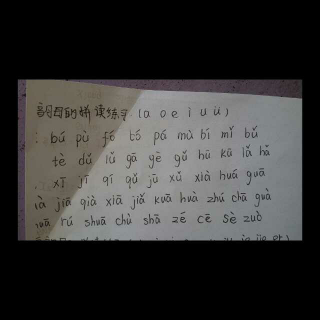 韵母的拼读练习 (a o e i u ü)
bú pù fó tó pá mù bí mǐ bǔ
tè dú lǔ gā gē gǔ hū kū lá hā
xī jí qí qǔ jū xǔ xià huá guā
ià jiā qià xiā jiǎ kuā huà zhú chā guà
rú shuā chù shā zé cē sè zuò